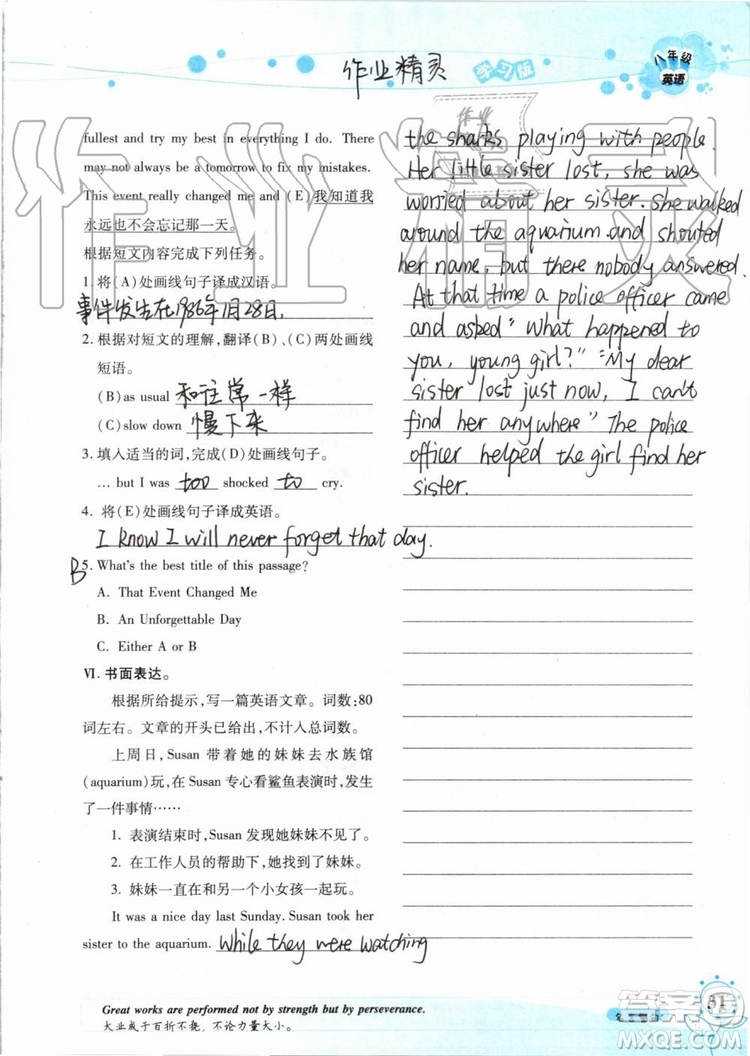 八年级
英语
学习版
作业精灵
fullest and try my best in everything I do. There
may not always be a tomorrow to fix my mistakes.
This event really changed me and (E)我知道我
永远也不会忘记那一天。
根据短文内容完成下列任务。
1. 将(A)处画线句子译成汉语。
事件发生在1986年1月28日.
2. 根据对短文的理解,翻译(B)、(C)两处画线
短语。
(B)as usual 和往常一样
(C)slow down 慢下来
3. 填入适当的词,完成(D)处画线句子。
… but I was too shocked to cry.
4. 将(E)处画线句子译成英语。
I know I will never forget that day.
B 5. What's the best title of this passage?
A. That Event Changed Me
B. An Unforgettable Day
C. Either A or B
Ⅵ. 书面表达。
根据所给提示,写一篇英语文章。词数:80
词左右。文章的开头已给出,不计入总词数。
上周日, Susan 带着她的妹妹去水族馆
(aquarium)玩,在 Susan 专心看鲨鱼表演时,发生
了一件事情……
1. 表演结束时, Susan 发现她妹妹不见了。
2. 在工作人员的帮助下,她找到了妹妹。
3. 妹妹一直在和另一个小女孩一起玩。
It was a nice day last Sunday. Susan took her
sister to the aquarium. While they were watching
the sharks playing with people.
Her little sister lost, she was
worried about her sister. She walked
around the aquarium and shouted
her name, but there nobody answered.
At that time a police officer came
and asked "What happened to
you, young girl?" "My dear
sister lost just now, I can't
find her anywhere" The police
officer helped the girl find her
sister.
Great works are performed not by strength but by perseverance.
大业成于百折不挠,不论力量大小。
31
作业精灵
答案圈
MXQE.COM